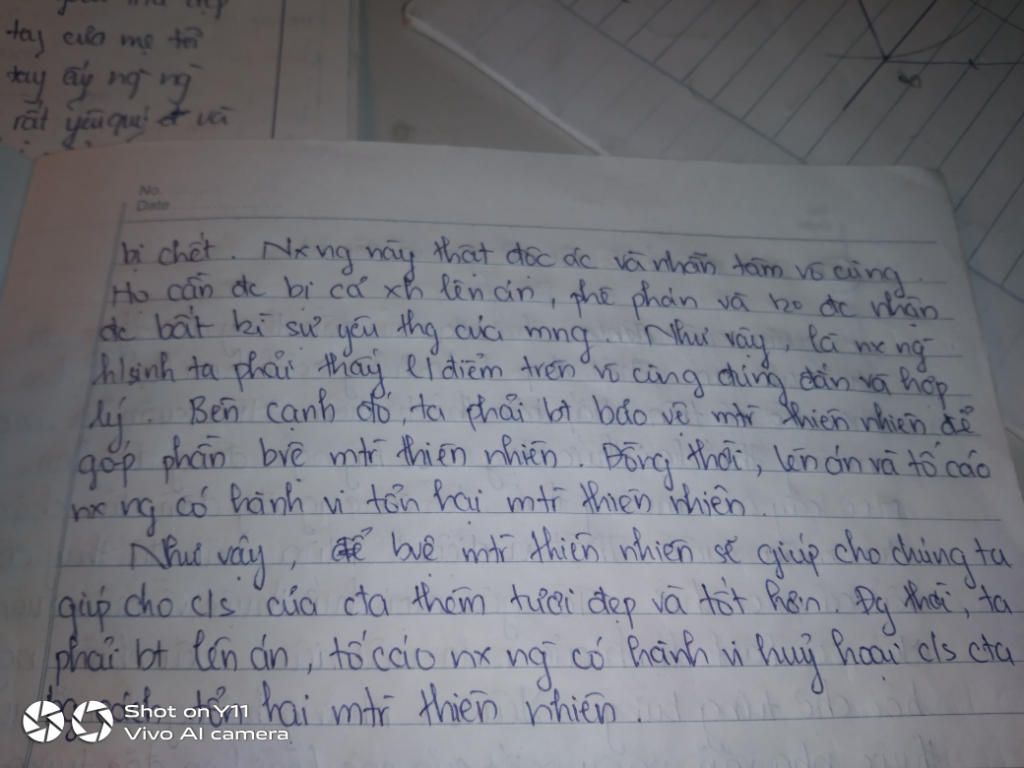 tay của mẹ tôi
tay ấy ng ng
rất yêu quí và
No.
Date
bị chết. Nx ng này thật độc ác và nhẫn tâm vô cùng.
Họ cần đc bị cả xh lên án, phê phán và ko đc nhận
đc bất kì sự yêu thg của mng. Như vậy, là nx ng
h/sinh ta phải thấy q/điểm trên vô cùng đúng đắn và hợp
lý. Bên cạnh đó, ta phải bt bảo vệ mtr thiên nhiên để
góp phần bvệ mtr thiên nhiên. Đồng thời, lên án và tố cáo
nx ng có hành vi tổn hại mtr thiên nhiên.
Như vậy, để bvệ mtr thiên nhiên sẽ giúp cho chúng ta
giúp cho c/s của cta thêm tươi đẹp và tốt hơn. Đg thời, ta
phải bt lên án, tố cáo nx ng có hành vi huỷ hoại c/s cta
tổn hại mtr thiên nhiên.
Shot on Y11
Vivo AI camera